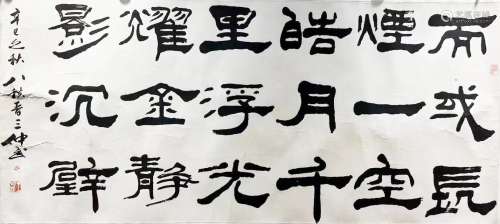 而或長
煙一空
皓月千
里浮光
耀金静
影沉璧
辛巳之秋八秩晋三仲